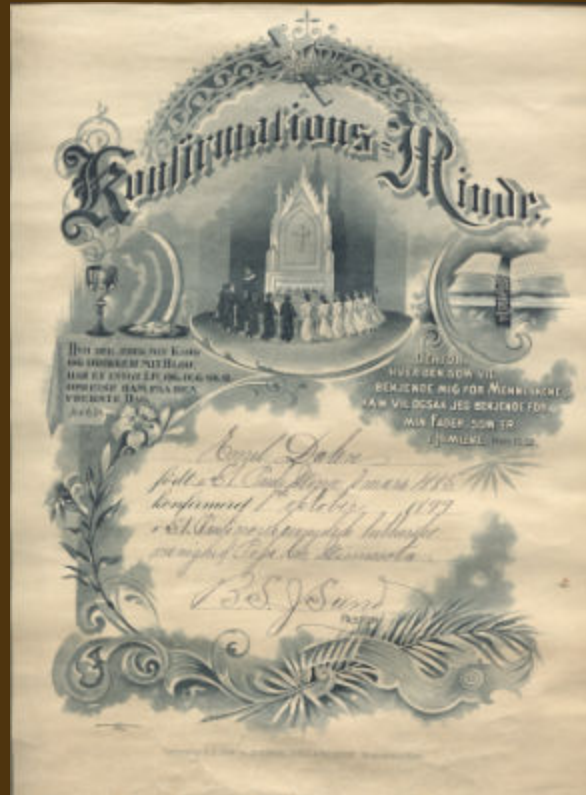 Konfirmations-Minde.
HVO DER ÆDER MIT KJØD
OG DRIKKER MIT BLOD,
HAR ET EVIGT LIV, OG JEG SKAL
OPREISE HAM PAA DEN
YDERSTE DAG.
DERFOR,
HVER DEN SOM VIL
BEKJENDE MIG FOR MENNESKENE,
HAM VIL OGSAA JEG BEKJENDE FOR
MIN FADER, SOM ER
I HIMLENE.
Emil
født i St. Paul, Minn. 7 mars
konfirmeret 1 oktober 1899
i St. Pauli norsk evangelisk lutherske
menighed Minnesota
B. S. J. Sund